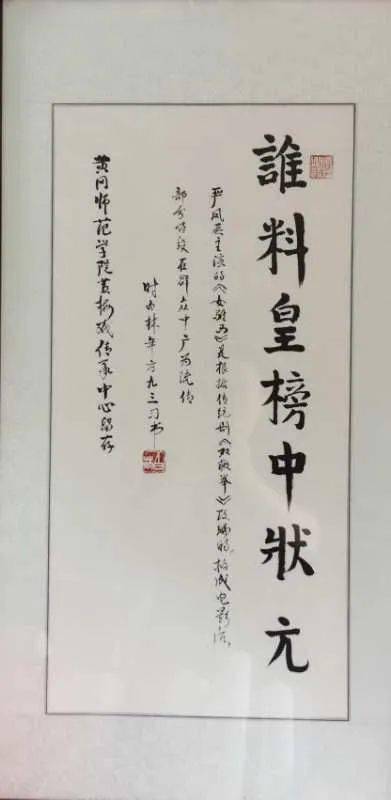 誰料皇榜中狀元
严凤英主演的《女驸马》是根据传统剧《双救举》改编的。拍成电影后，
部分唱段在群众中广为流传
时白林年方九三习书
黄冈师范学院黄梅戏传承中心留存